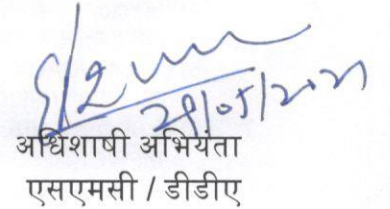 28/05/2021
अधिशाषी अभियंता
एसएमसी / डीडीए